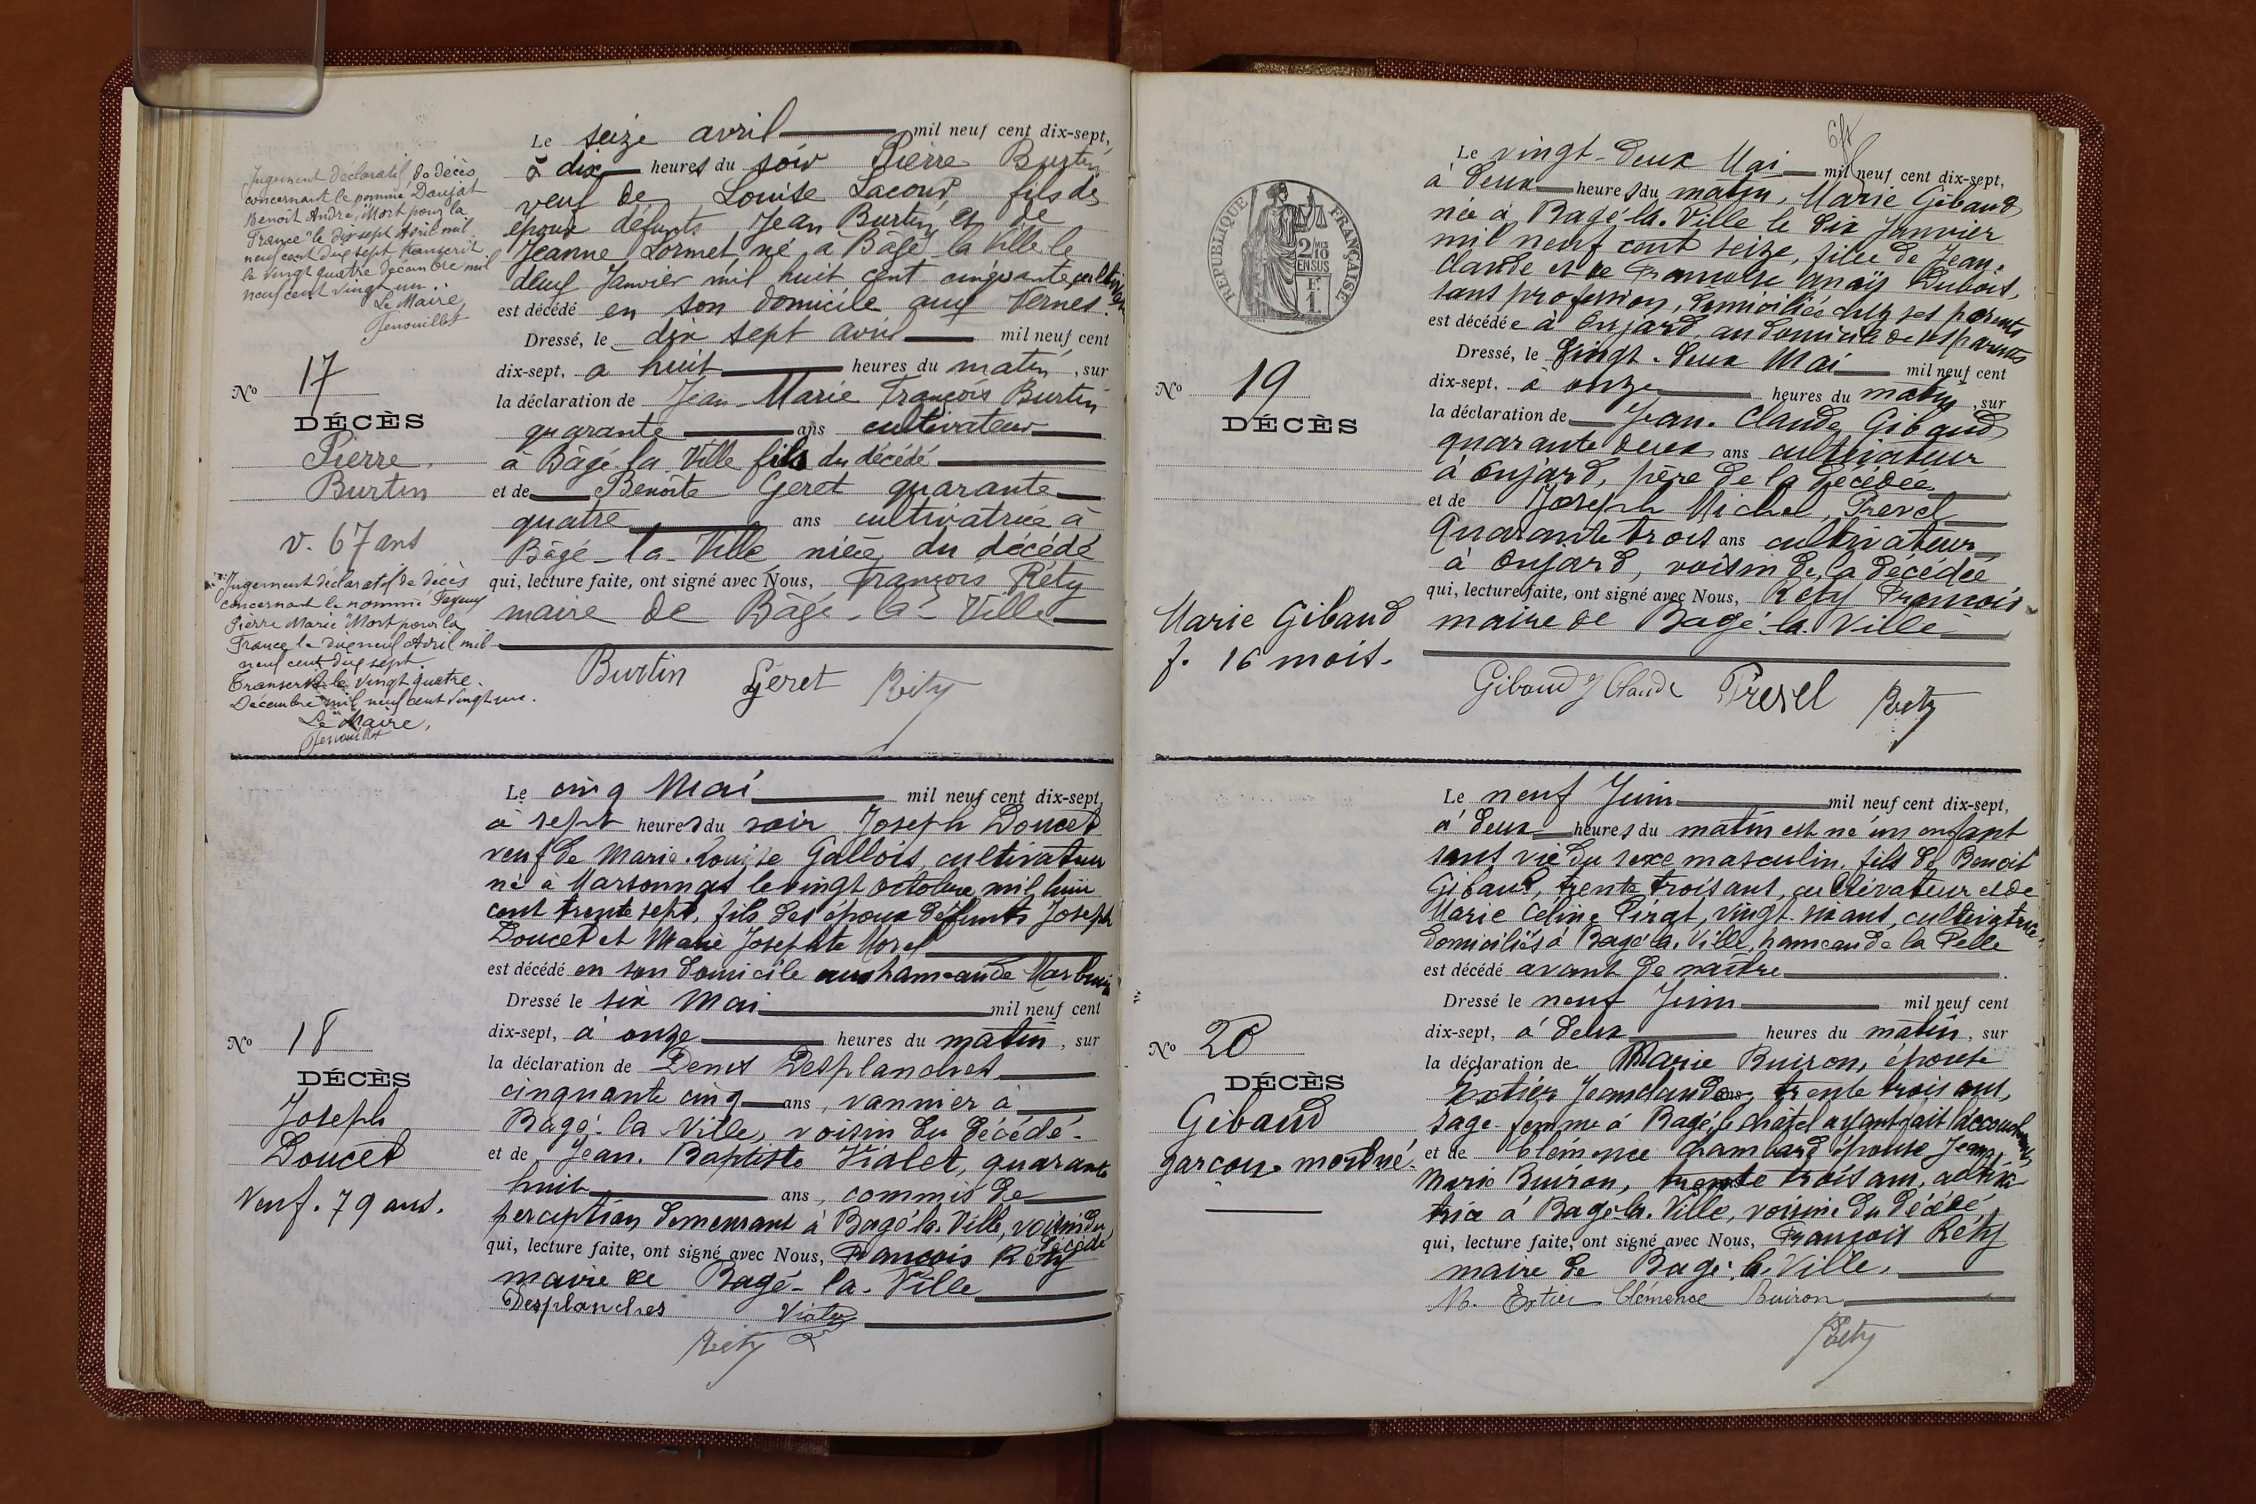 Jugement déclaratif de décès
concernant le nommé Daujat
Benoit André, "Mort pour la
France" le dix sept Avril mil
neuf cent dix sept transcrit
le vingt quatre décembre mil
neuf cent vingt un.
Le Maire,
Fenouillet
No 17
DÉCÈS
Pierre
Burtin
v. 67 ans
Jugement déclaratif de décès
concernant le nommé
Pierre Marie "Mort pour la
France" le dix neuf Avril mil
neuf cent dix sept.
Transcrit le vingt quatre
Décembre mil neuf cent vingt un.
Le Maire,
Fenouillet
Le seize avril mil neuf cent dix-sept,
à dix heures du soir Pierre Burtin
veuf de Louise Lacour fils des
époux défunts Jean Burtin et de
Jeanne Lormet né à Bâgé-la-Ville le
deux Janvier mil huit cent cinquante cultivateur
est décédé en son domicile aux Vernes.
Dressé, le dix sept avril mil neuf cent
dix-sept, à huit heures du matin, sur
la déclaration de Jean-Marie François Burtin
quarante ans cultivateur
à Bâgé la Ville fils du décédé
et de Benoîte Geret quarante
quatre ans cultivatrice à
Bâgé-la-Ville nièce du décédé
qui, lecture faite, ont signé avec Nous, François Réty
maire de Bâgé-la-Ville
Burtin Geret Réty
No 18
DÉCÈS
Joseph
Doucet
Veuf. 79 ans.
Le cinq Mai mil neuf cent dix-sept,
à sept heures du soir Joseph Doucet
veuf de Marie-Louise Gallois, cultivateur
né à Marsonnas le vingt octobre mil huit
cent trente sept, fils des époux défunts Joseph
Doucet et Marie Josephte Morel
est décédé en son domicile au hameau de
Dressé le six Mai mil neuf cent
dix-sept, à onze heures du matin, sur
la déclaration de Denis Desplanches
cinquante cinq ans, vannier à
Bagé-la-Ville, voisin du décédé-
et de Jean-Baptiste Vialet, quarante
huit ans, commis de
perception demeurant à Bagé-la-Ville, voisin du
décédé
qui, lecture faite, ont signé avec Nous, François Réty
maire de Bagé-la-Ville
Desplanches Vialet
Réty
RÉPUBLIQUE FRANÇAISE
2/10
EN SUS
1 F.
No 19
DÉCÈS
Marie Gibaud
f. 16 mois.
Le vingt-deux Mai mil neuf cent dix-sept,
à deux heures du matin, Marie Gibaud
née à Bagé-la-Ville le dix Janvier
mil neuf cent seize, fille de Jean-
Claude et de Francoise Anaïs Dubois,
sans profession, domiciliée chez ses parents
est décédée à Onjard, au domicile de ses parents
Dressé, le vingt-deux Mai mil neuf cent
dix-sept, à onze heures du matin, sur
la déclaration de Jean-Claude Gibaud
quarante deux ans cultivateur
à Onjard, père de la décédée
et de Joseph Michel Prevel
Quarante trois ans cultivateur
à Onjard, voisin de la décédée
qui, lecture faite, ont signé avec Nous, Réty François
maire de Bagé-la-Ville
Gibaud J Claude Prevel Réty
No 20
DÉCÈS
Gibaud
garçon mort né.
Le neuf Juin mil neuf cent dix-sept,
à deux heures du matin est né un enfant
sans vie du sexe masculin, fils de Benoit
Gibaud, trente trois ans, cultivateur et de
Marie Céline Pirat, vingt six ans, cultivatrice
domiciliés à Bagé-la-Ville, hameau de la Pelle
est décédé avant de naître
Dressé le neuf Juin mil neuf cent
dix-sept, à deux heures du matin, sur
la déclaration de Marie Buiron, épouse
Extier Jean claude, trente trois ans,
sage-femme à Bagé-le-Châtel ayant fait l'accouchement
et de Clémence Chambard épouse Jean
Marie Buiron, trente trois ans, cultiva
trice à Bagé-la-Ville, voisine du décédé
qui, lecture faite, ont signé avec Nous, François Réty
maire de Bagé-la-Ville.
M. Extier Clémence Buiron
Réty